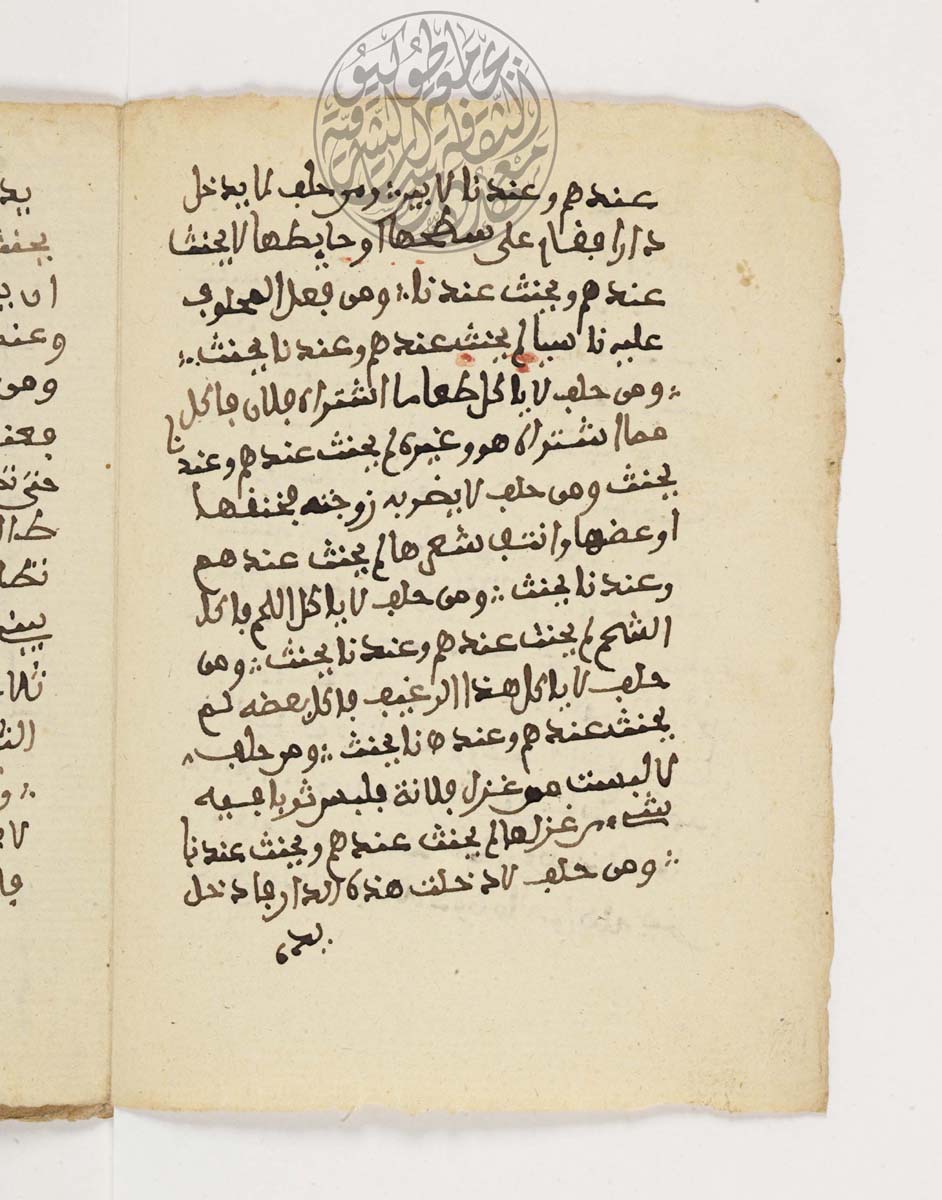 عندهم وعندنا لا يبر ∴ ومن حلف لا يدخل
دارا فقام على سطحها او حايطها لا يحنث
عندهم ويحنث عندنا ∴ ومن فعل المحلوف
عليه ناسيا لم يحنث عندهم وعندنا يحنث ∴
∴ ومن حلف لا ياكل طعاما اشتراه فلان فاكل
مما اشتراه هو وغيره لم يحنث عندهم وعندنا
يحنث ومن حلف لا يضرب زوجته فخنقها
او عضها وانتف شعرها لم يحنث عندهم
وعندنا يحنث ∴ ومن حلف لا ياكل اللحم فاكل
الشحم لم يحنث عندهم وعندنا يحنث ∴ ومن
حلف لا ياكل هذا الرغيف فاكل بعضه لم
يحنث عندهم وعندنا يحنث ∴ ومن حلف
لا لبست من غزل فلانة فلبس ثوبا فيه
شيء من غزلها لم يحنث عندهم ويحنث عندنا
∴ ومن حلف لا دخلت هذه الدار فادخل
يده